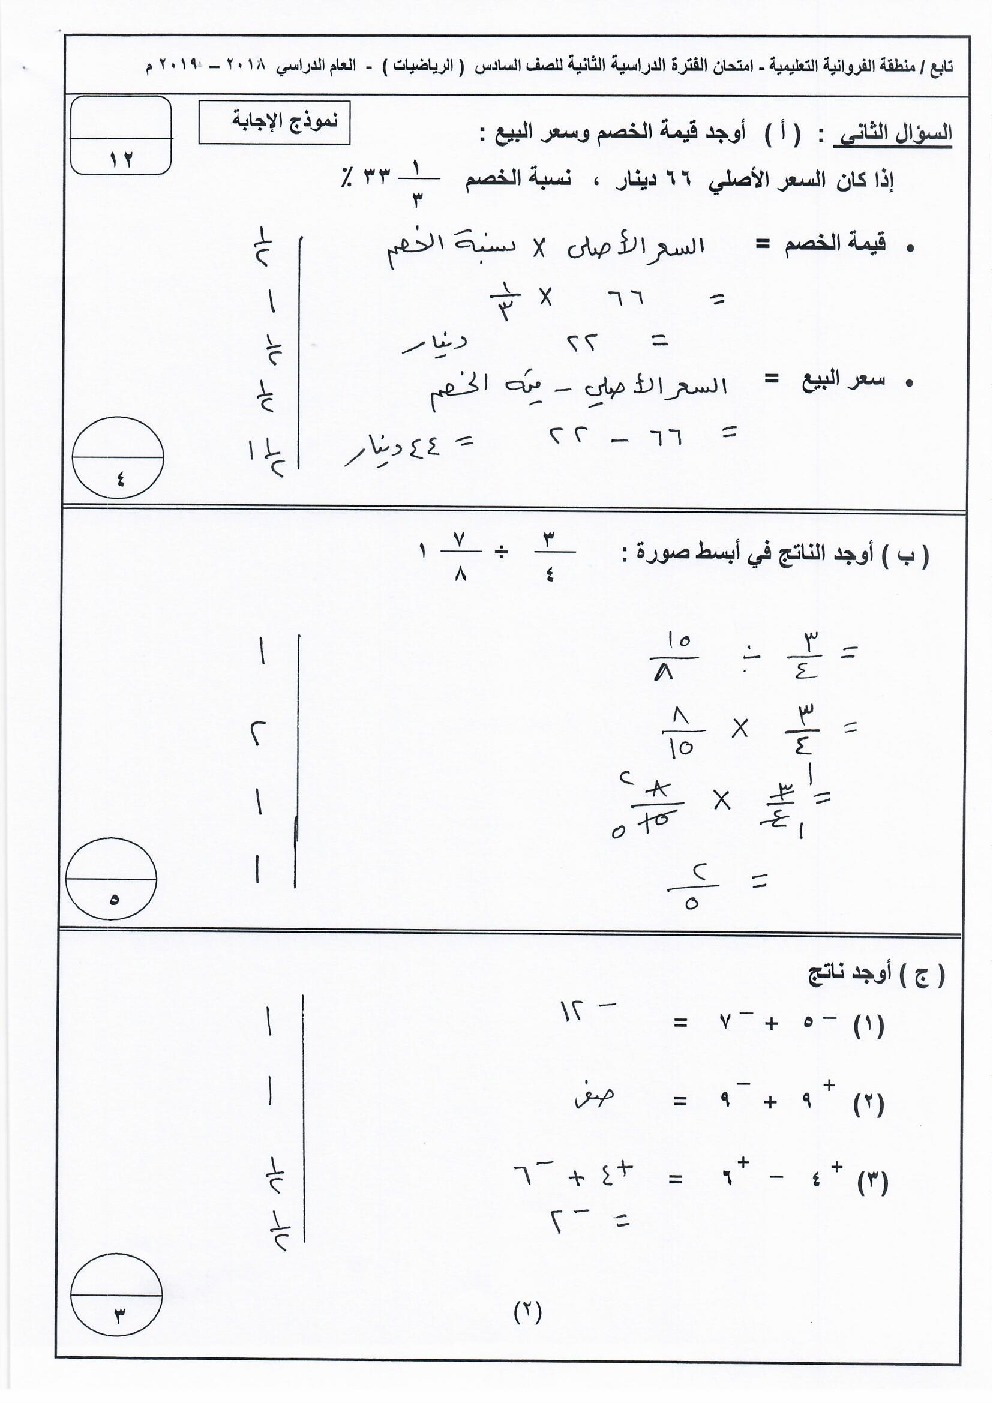 تابع / منطقة الفروانية التعليمية - امتحان الفترة الدراسية الثانية للصف السادس ( الرياضيات ) - العام الدراسي ٢٠١٨ – ٢٠١٩ م
نموذج الإجابة
١٢
السؤال الثاني : ( أ ) أوجد قيمة الخصم وسعر البيع :
إذا كان السعر الأصلي ٦٦ دينار ، نسبة الخصم ١/٣ ٣٣ ٪
• قيمة الخصم = السعر الأصلي × نسبة الخصم ١/٢
= ٦٦ × ١/٣ ١
= ٢٢ دينار ١/٢
• سعر البيع = السعر الأصلي – قيمة الخصم ١/٢
= ٦٦ – ٢٢ = ٤٤ دينار ١ ١/٢
٤
( ب ) أوجد الناتج في أبسط صورة : ٣/٤ ÷ ٧/٨ ١
= ٣/٤ ÷ ١٥/٨ ١
= ٣/٤ × ٨/١٥ ٢
= ٣/٤ ١ ١ × ٨/١٥ ٢ ٥ ١
= ٢/٥ ١
٥
( ج ) أوجد ناتج
(١) ⁻٥ + ⁻٧ = ⁻١٢ ١
(٢) ⁺٩ + ⁻٩ = صفر ١
(٣) ⁺٤ – ⁺٦ = ⁺٤ + ⁻٦ ١/٢
= ⁻٢ ١/٢
٣
(٢)